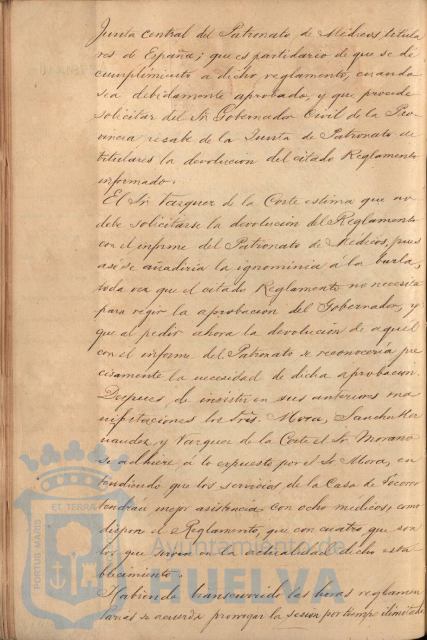 Junta central del Patronato de Médicos titula
res de España; que es partidario de que se dé
cumplimiento a dicho reglamento, cuando
sea debidamente aprobado, y que procede
solicitar del Sr Gobernador Civil de la Pro
vincia recabe de la Junta de Patronato de
titulares la devolucion del citado Reglamento
informado.
El Sr Vazquez de la Corte estima que no
debe solicitarse la devolucion del Reglamento
con el informe del Patronato de Médicos, pues
asi se añadiria la ignominia á la burla,
toda vez que el citado Reglamento no necesita
para regir la aprobacion del Gobernador, y
que al pedir ahora la devolución de aquel
con el informe del Patronato se reconocería pre
cisamente la necesidad de dicha aprobacion.
Despues de insistir en sus anteriores ma
nifestaciones los Sres. Mora, Sanchez Her
nandez y Vazquez de la Corte el Sr Morano
se adhiere á lo expuesto por el Sr Mora, en
tendiendo que los servicios de la Casa de Socorro
tendran mejor asistencia con ocho médicos, como
dispone el Reglamento, que con cuatro que son
los que sirven en la actualidad dicho esta
blecimiento.
Habiendo transcurrido las horas reglamen
tarias se acuerda prorrogar la sesion por tiempo ilimitado
PORTUS MARIS ET TERRAE
Ayuntamiento de
HUELVA